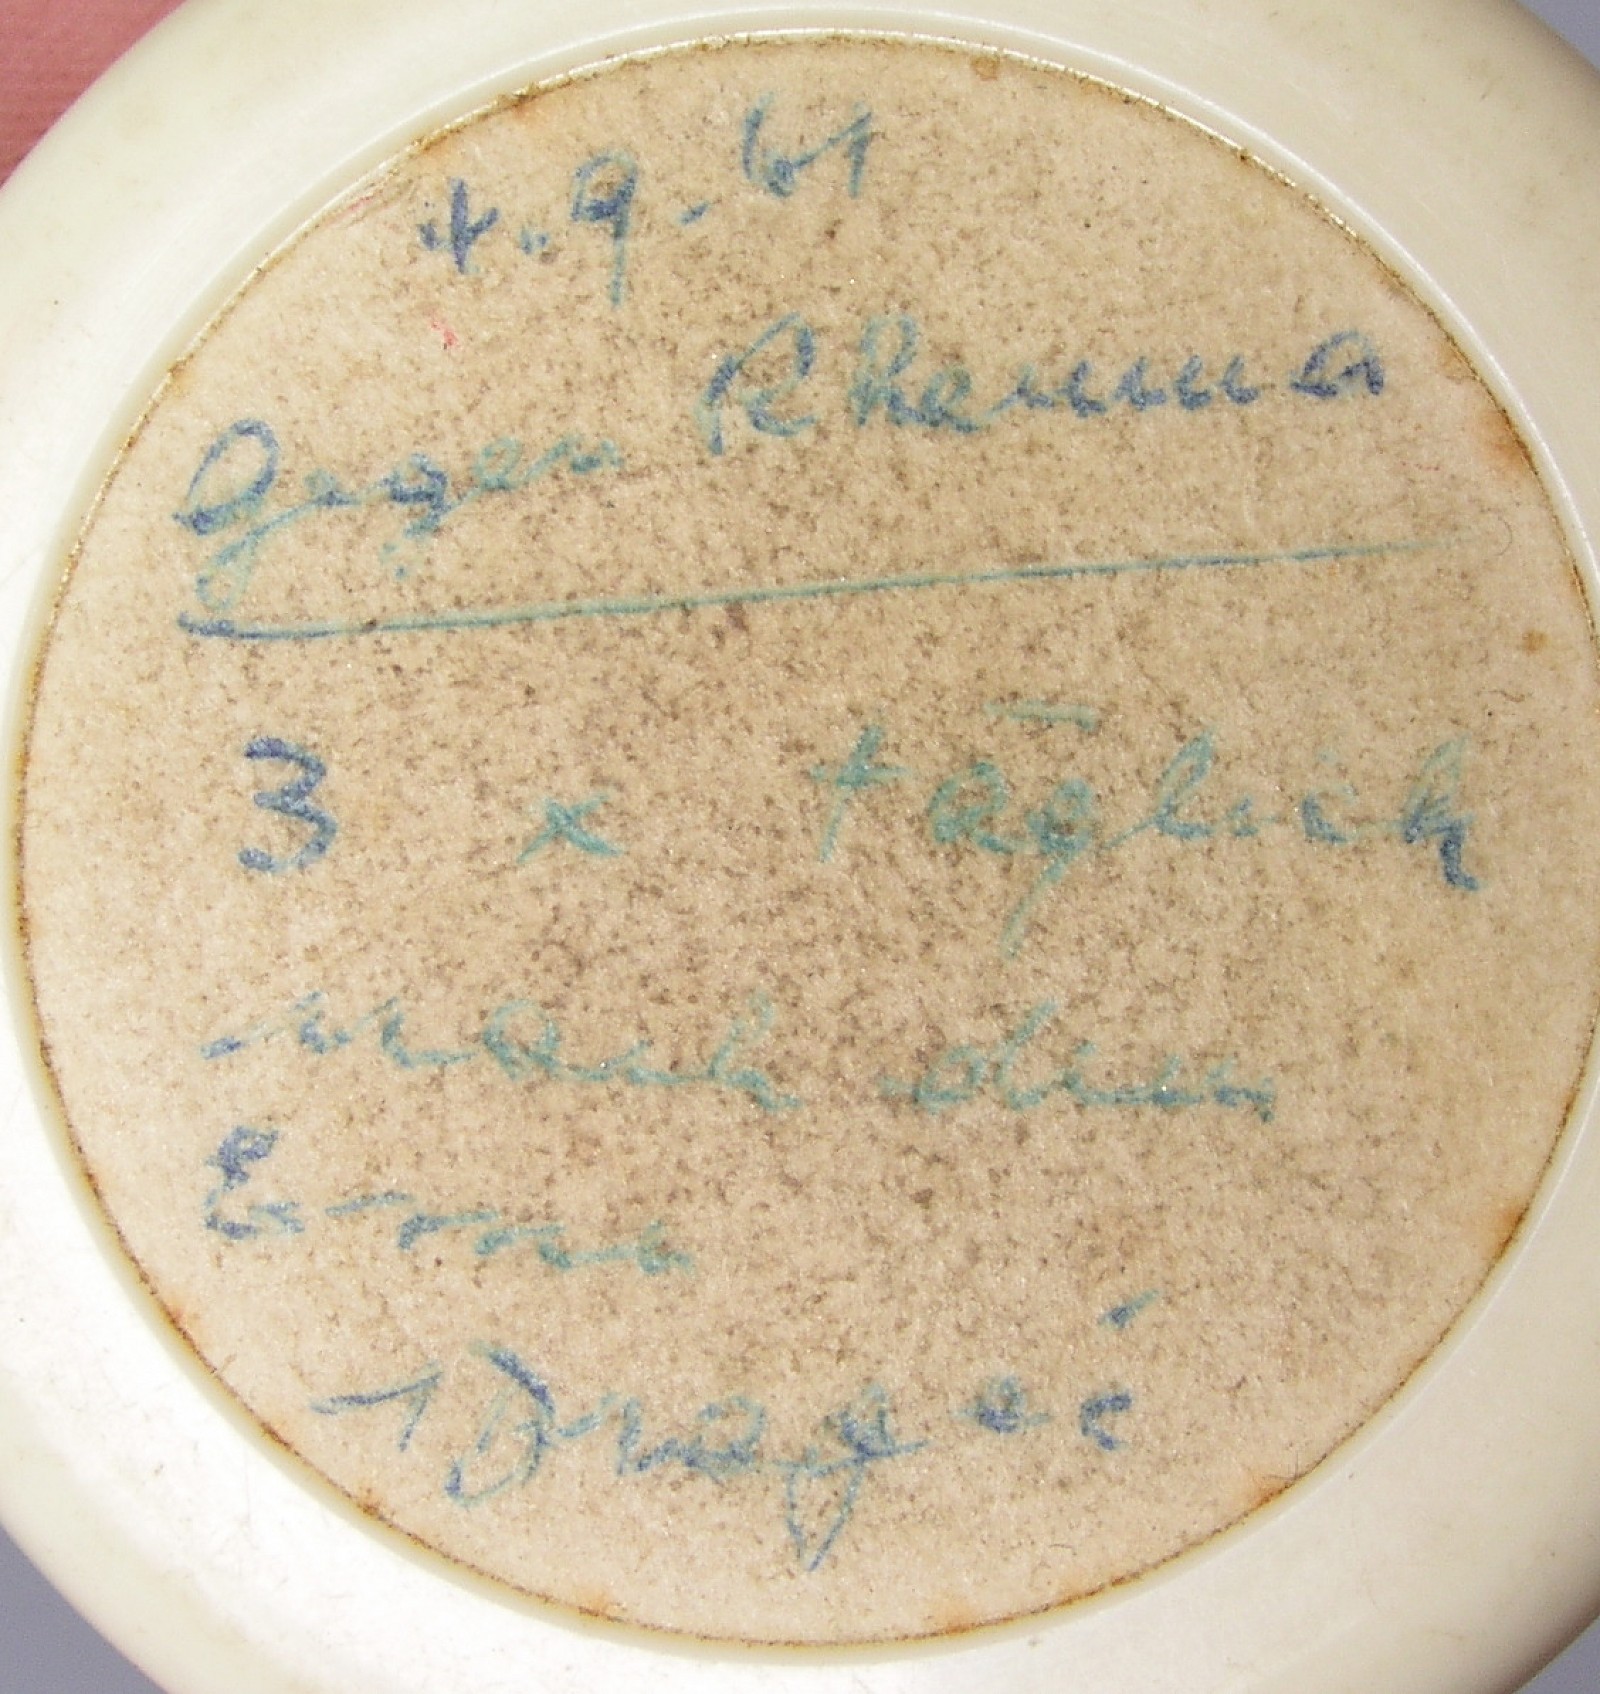 4.9.61
Gegen Rheuma
3 x täglich
nach dem
Essen
1 Drageé